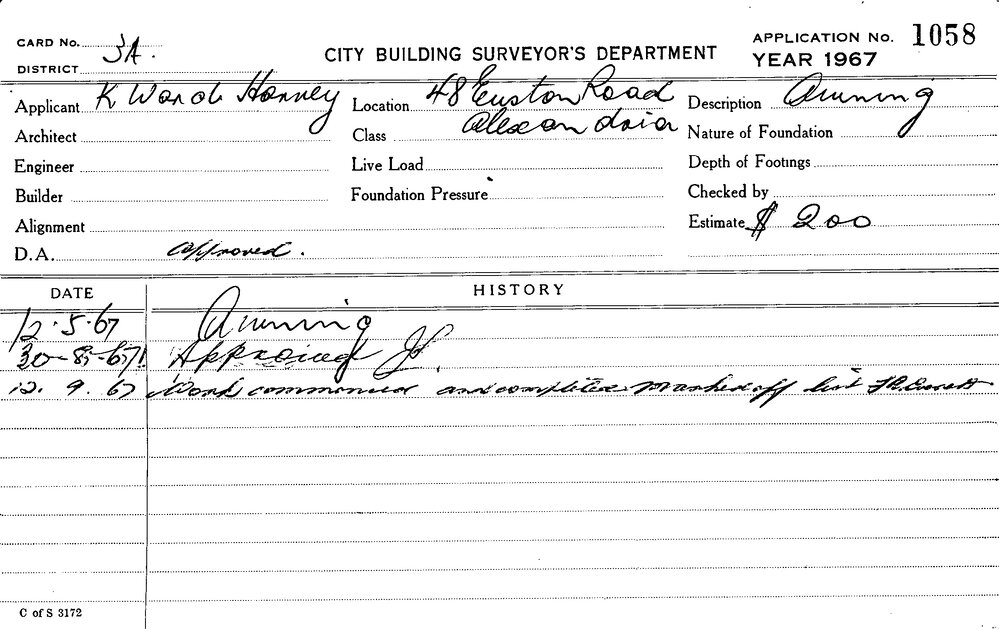 CARD No. 3A.
DISTRICT
CITY BUILDING SURVEYOR'S DEPARTMENT
APPLICATION No. 1058
YEAR 1967
Applicant K Harvey
Location 48 Euston Road
Alexandria
Description Awning
Architect
Class
Nature of Foundation
Engineer
Live Load
Depth of Footings
Builder
Foundation Pressure
Checked by
Alignment
Estimate $ 200
D.A. approved.
DATE
HISTORY
12.5.67 Awning
30-8-67 Approved
12.9.67 Work commenced and completed Marked off list
C of S 3172